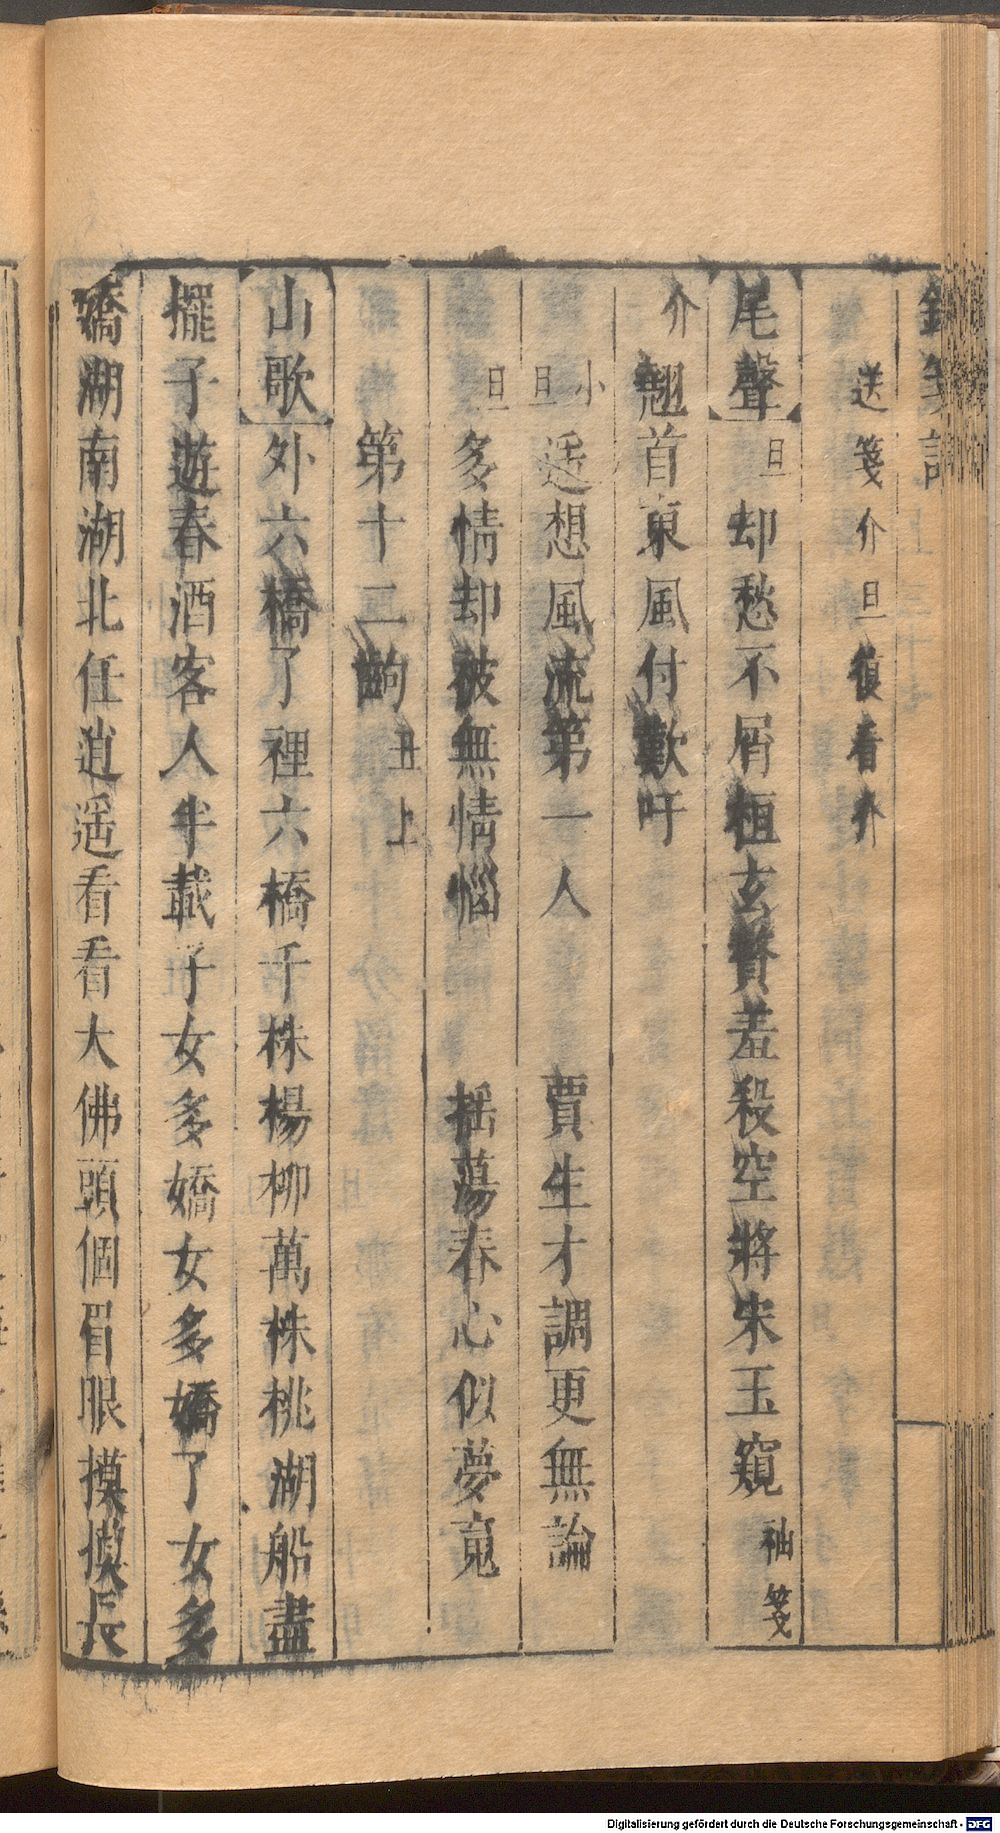 送箋介旦復看介
尾聲旦却愁不屑楦玄贅羞殺空將宋玉窺袖箋
介翹首東風付歎吁
小旦遥想風流第一人　賈生才調更無論
旦多情却被無情惱　搖蕩春心似夢䰟
第十二齣丑上
山歌外六橋了裡六橋千株楊柳萬株桃湖船盡
擺子遊春酒客人半載子女多嬌女多嬌了女多
嬌湖南湖北任逍遥看看大佛頭個眉眼摸摸長
Digitalisierung gefördert durch die Deutsche Forschungsgemeinschaft - DFG